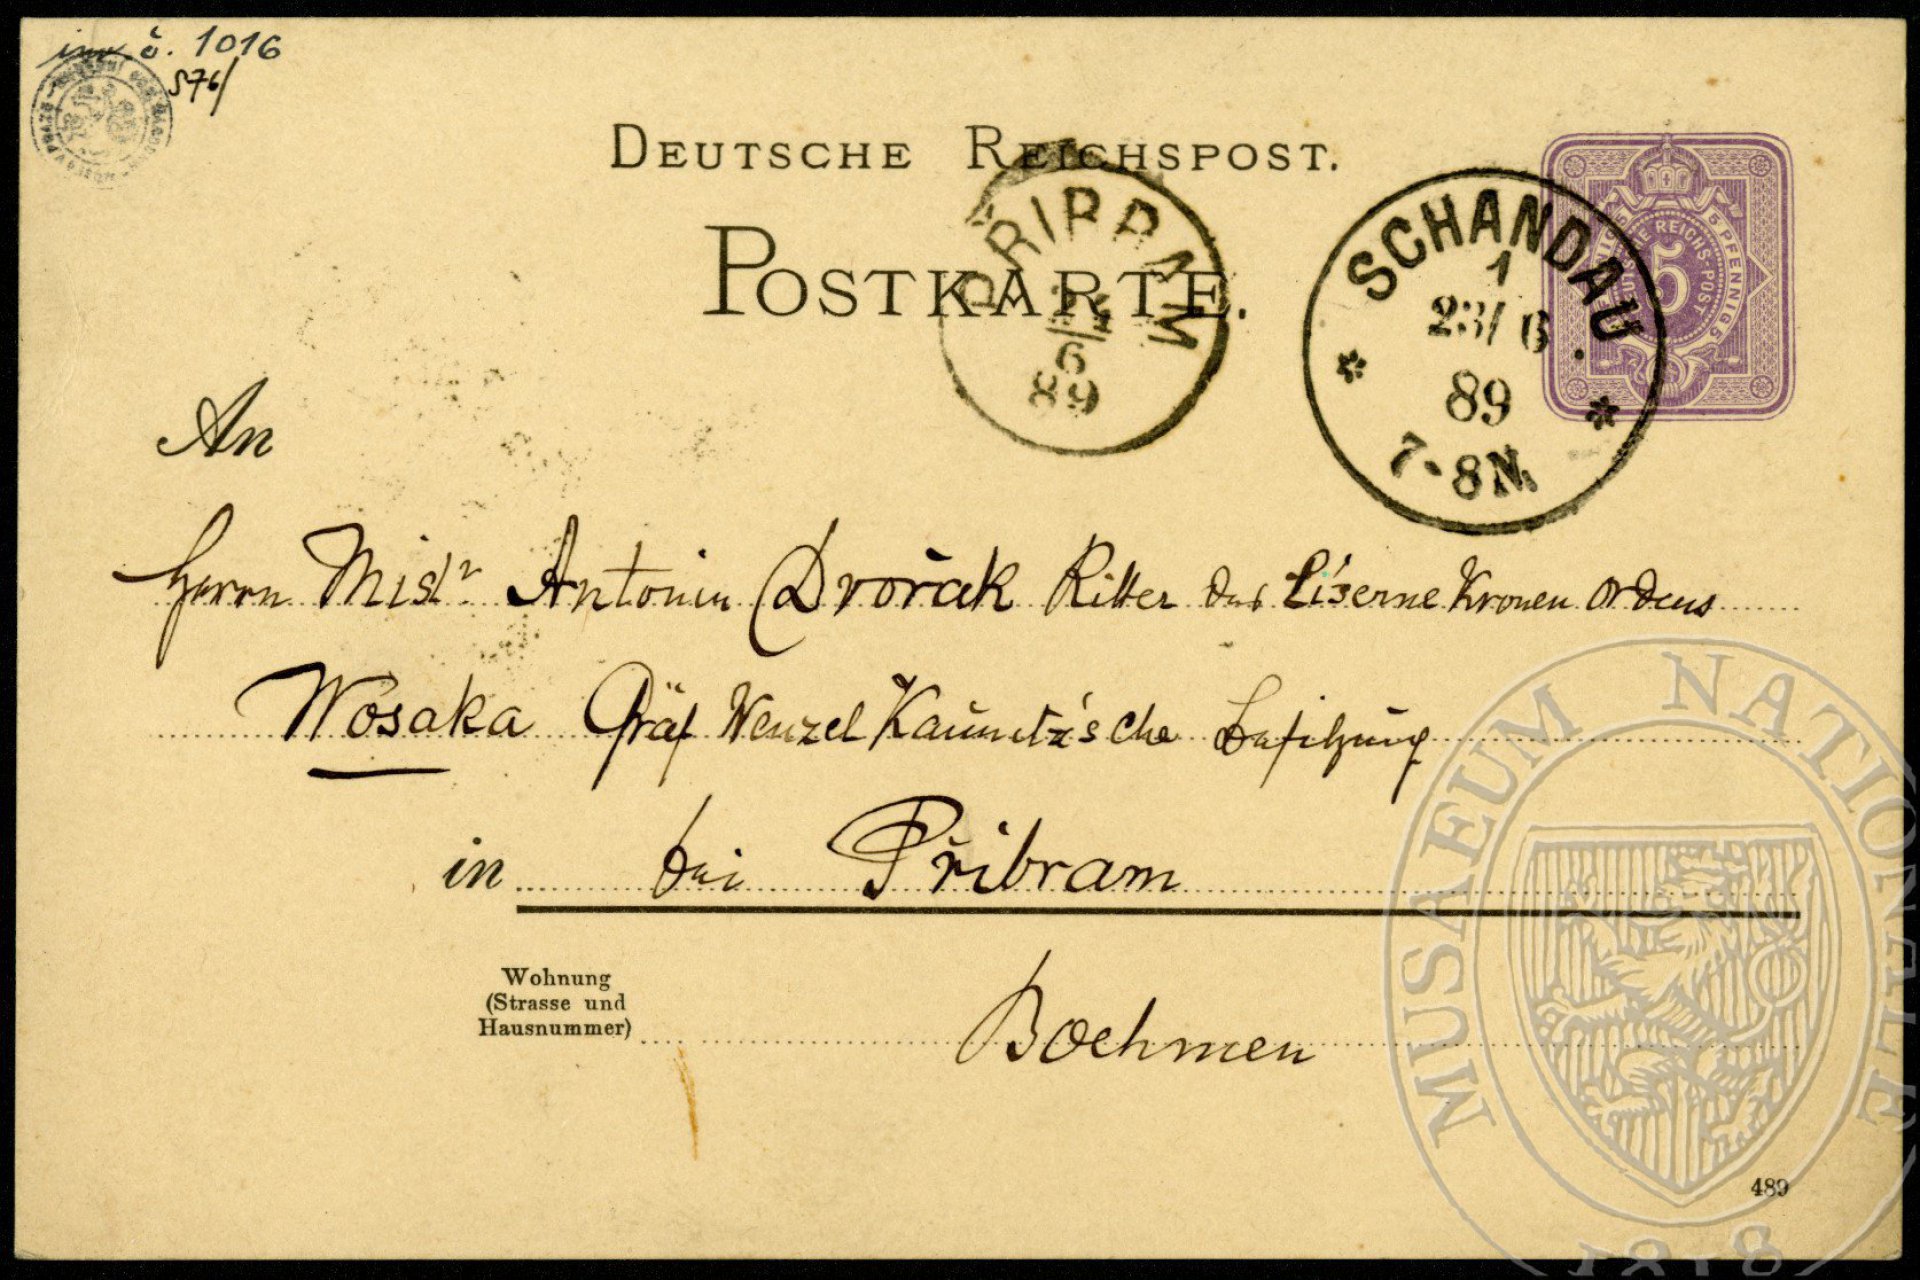 inv. č. 1016
576/
DEUTSCHE REICHSPOST.
POSTKARTE.
PŘIBRAM
6
89
SCHANDAU
1
23/6
89
7-8N.
5 PFENNIG 5
DEUTSCHE REICHS-POST
5
An
Herrn Mistr Antonin Dvořak Ritter der Eiserne Kronen Ordens
Wosaka Gräf Wenzel Kaunitz'sche Besitzung
in bei Přibram
Wohnung
(Strasse und
Hausnummer)
Boehmen
489
MUSAEUM NATIONALE
1818